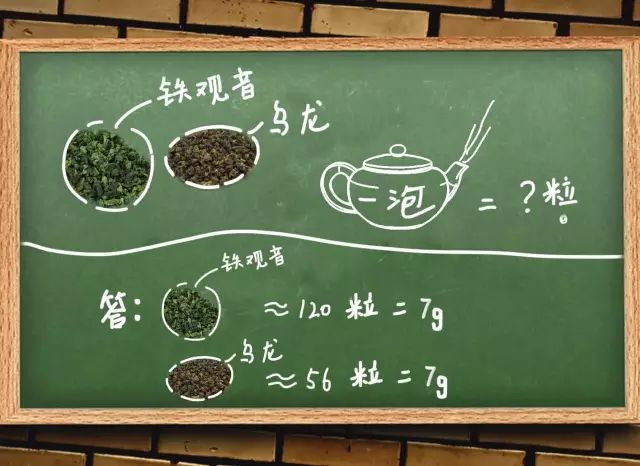 铁观音
乌龙
一泡 = ？粒
铁观音
答： ≈120 粒 = 7g
乌龙
≈56 粒 = 7g